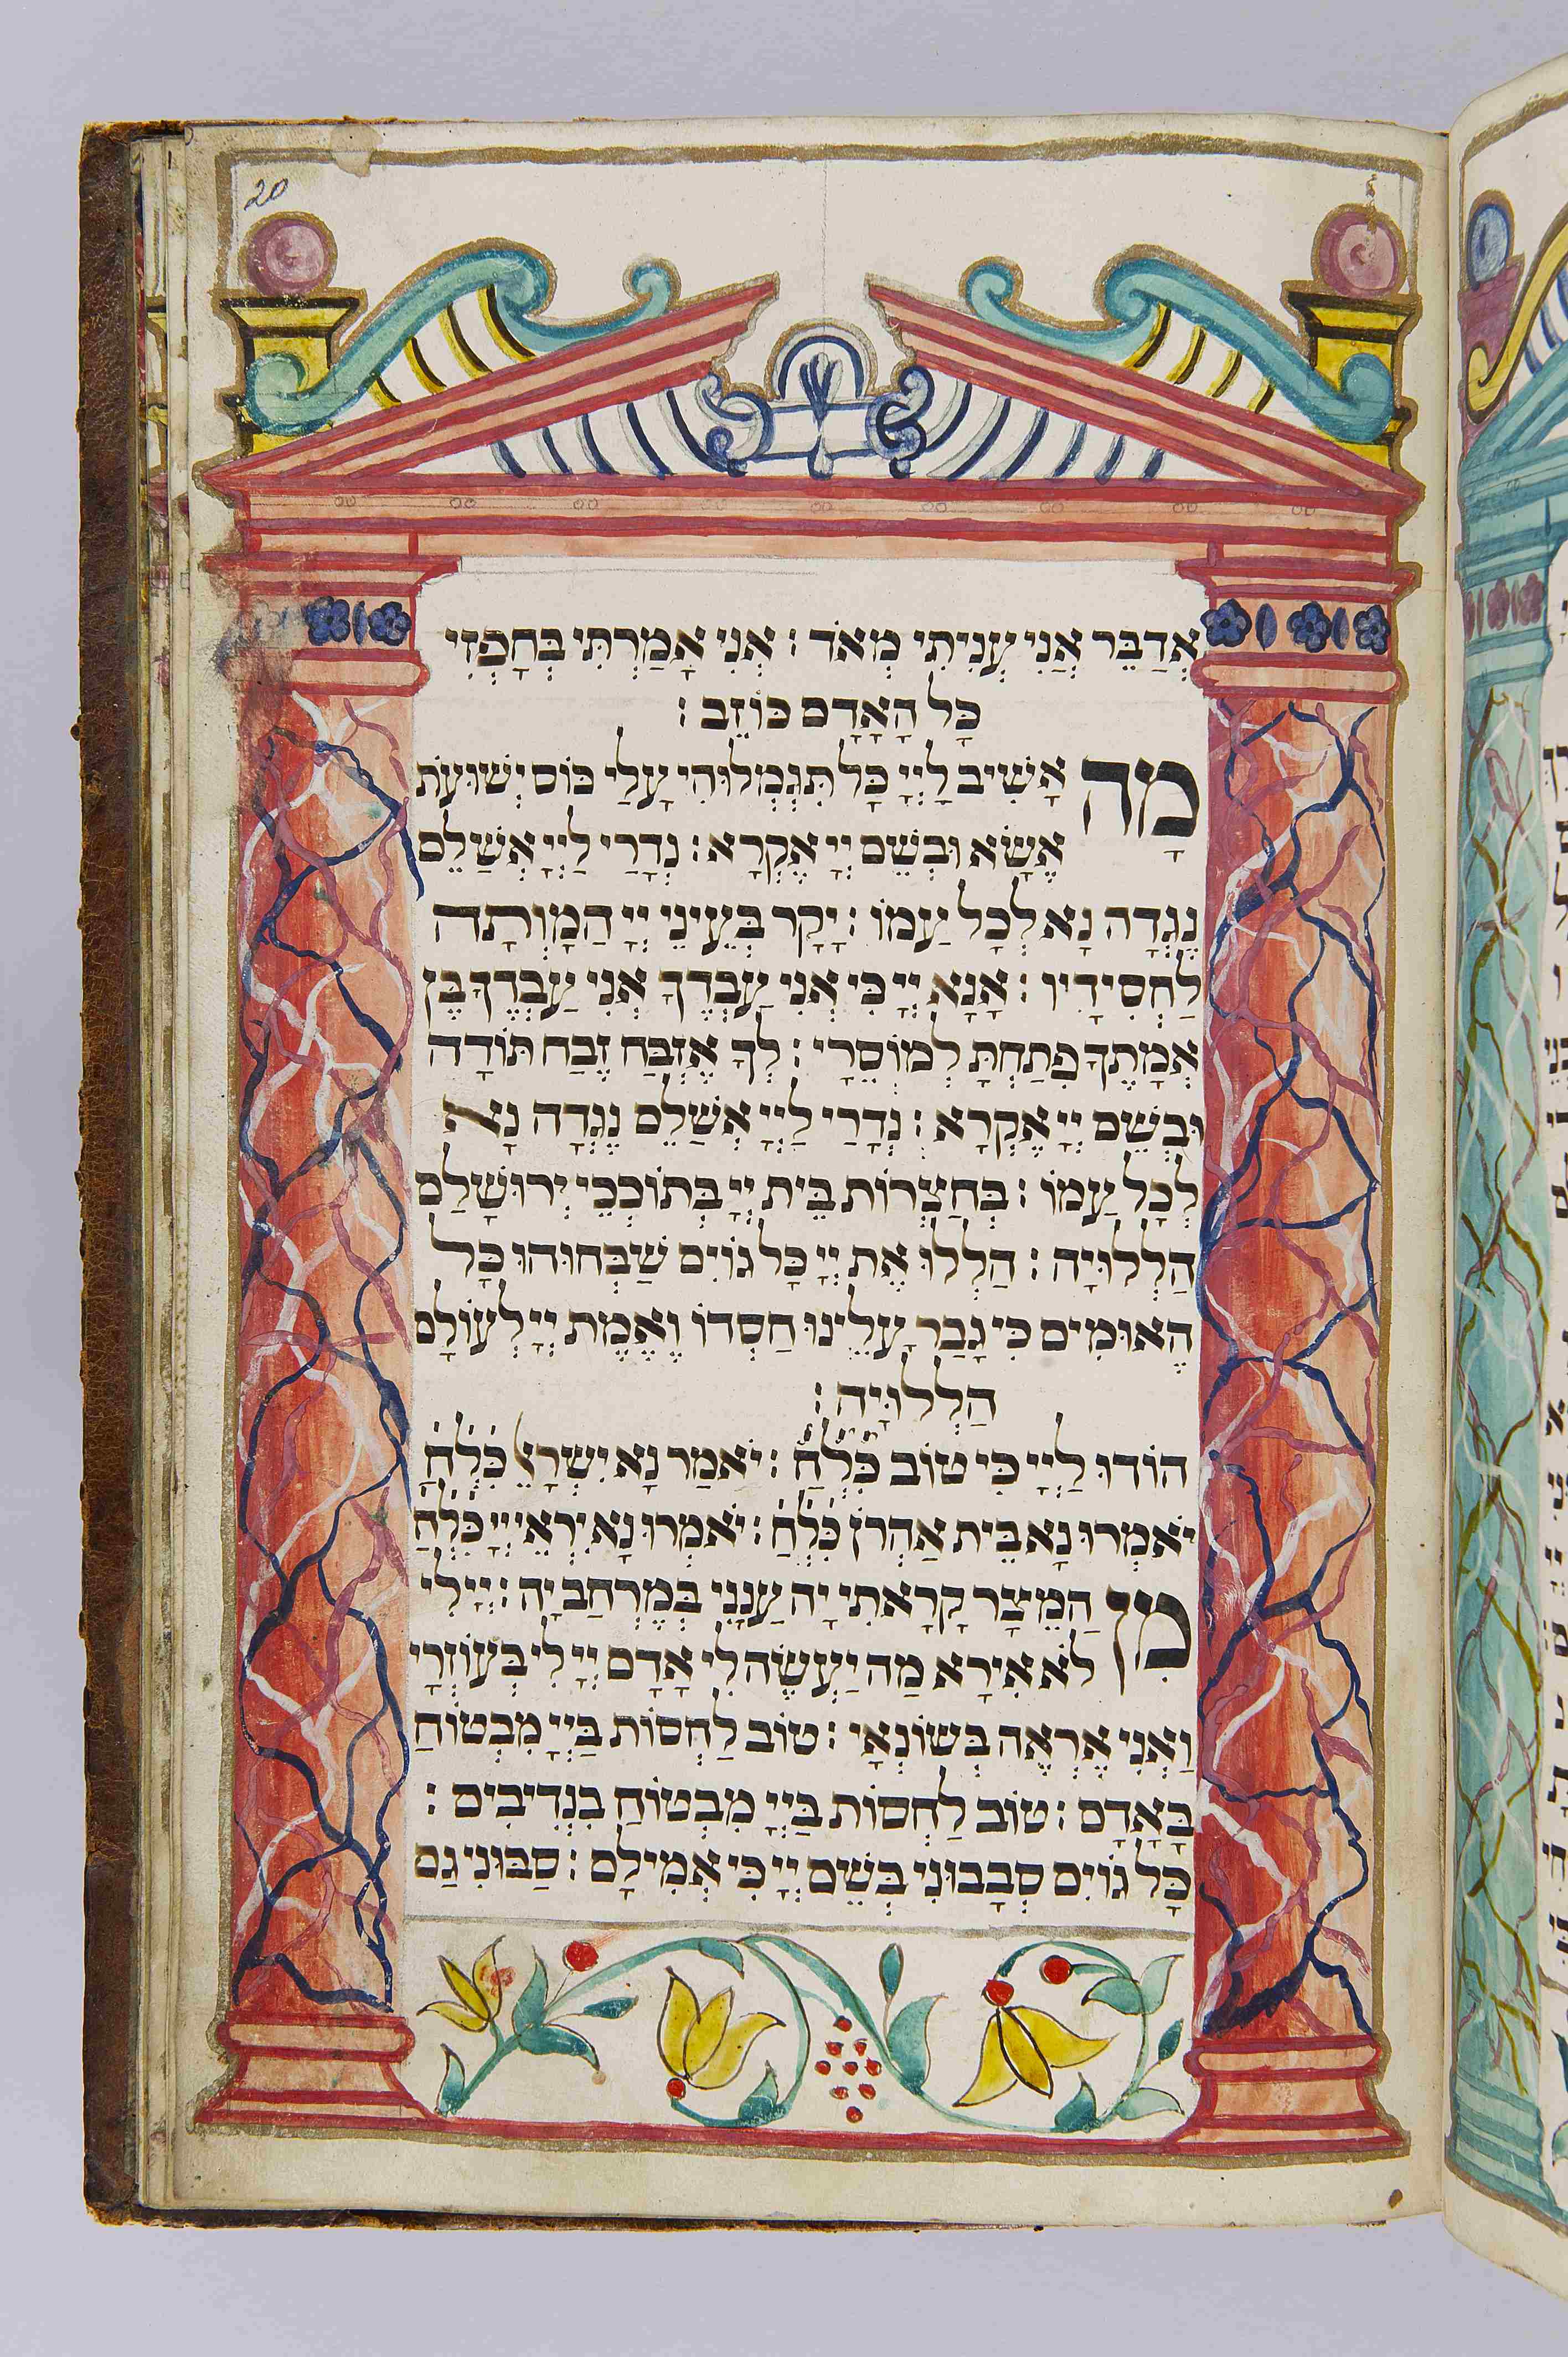 20
אֲדַבֵּר אֲנִי עָנִיתִי מְאֹד : אֲנִי אָמַרְתִּי בְּחָפְזִי
כָּל הָאָדָם כּוֹזֵב :
מָה אָשִׁיב לַיְיָ כָּל תַּגְמְלוּהִי עָלַי כּוֹס יְשׁוּעֹת
אֶשָּׂא וּבְשֵׁם יְיָ אֶקְרָא : נְדָרַי לַיְיָ אֲשַׁלֵּם
נֶגְדָה נָא לְכָל עַמּוֹ : יָקָר בְּעֵינֵי יְיָ הַמָּוְתָה
לַחֲסִידָיו : אָנָּא יְיָ כִּי אֲנִי עַבְדֶּךָ אֲנִי עַבְדְּךָ בֶּן
אֲמָתֶךָ פִּתַּחְתָּ לְמוֹסֵרָי : לְךָ אֶזְבַּח זֶבַח תּוֹדָה
וּבְשֵׁם יְיָ אֶקְרָא : נְדָרַי לַיְיָ אֲשַׁלֵּם נֶגְדָה נָא
לְכָל עַמּוֹ : בְּחַצְרוֹת בֵּית יְיָ בְּתוֹכְכֵי יְרוּשָׁלַם
הַלְלוּיָה : הַלְלוּ אֶת יְיָ כָּל גּוֹיִם שַׁבְּחוּהוּ כָּל
הָאוּמִים כִּי גָבַר עָלֵינוּ חַסְדּוֹ וֶאֱמֶת יְיָ לְעוֹלָם
הַלְלוּיָה :
הוֹדוּ לַיְיָ כִּי טוֹב כִּלְחַ : יֹאמַר נָא יִשְׂרָאֵל כִּלְחַ
יֹאמְרוּ נָא בֵּית אַהֲרֹן כִּלְחַ : יֹאמְרוּ נָא יִרְאֵי יְיָ כִּלְחַ
מִן הַמֵּצַר קָרָאתִי יָהּ עָנָנִי בְּמֶרְחַב יָה : יְיָ לִי
לֹא אִירָא מַה יַּעֲשֶׂה לִי אָדָם יְיָ לִי בְּעוֹזְרָי
וַאֲנִי אֶרְאֶה בְּשׂוֹנְאָי : טוֹב לַחֲסוֹת בַּיְיָ מִבְּטוֹחַ
בָּאָדָם : טוֹב לַחֲסוֹת בַּיְיָ מִבְּטוֹחַ בִּנְדִיבִים :
כָּל גּוֹיִם סְבָבוּנִי בְּשֵׁם יְיָ כִּי אֲמִילָם : סַבּוּנִי גַם